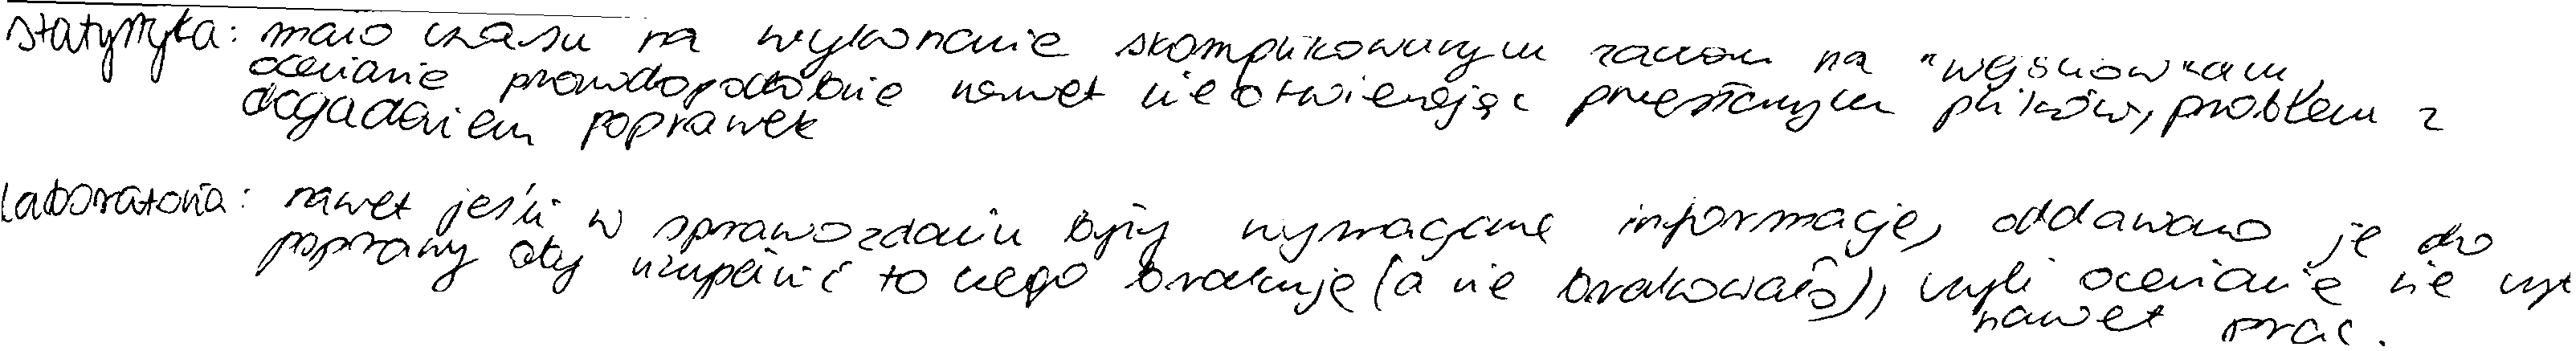 statystyka: mało czasu na wykonanie skomplikowanych zadań na "wejściów"kach,
ocenianie prawdopodobnie nawet nie otwierając przesłanych plików, problem z
dogadaniem poprawek
laboratoria: nawet jeśli w sprawozdaniu były wymagane informacje, oddawano je do
poprawy aby uzupełnić to czego brakuje (a nie brakowało), czyli ocenianie nie czyt
nawet prac.